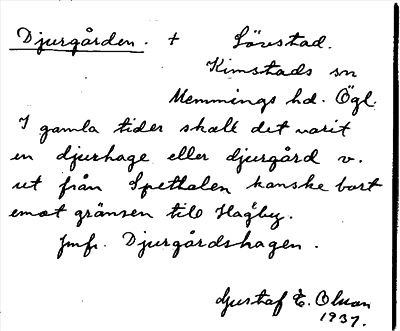 Djurgården. + Lövestad.
Kimstads sn
Memmings hd. Ögl.
I gamla tider skall det varit
en djurhage eller djurgård v.
ut från Spetthalen kanske bort
emot gränsen till Hagby.
Jmfr. Djurgårdshagen.
Gustaf E. Olsson
1937.